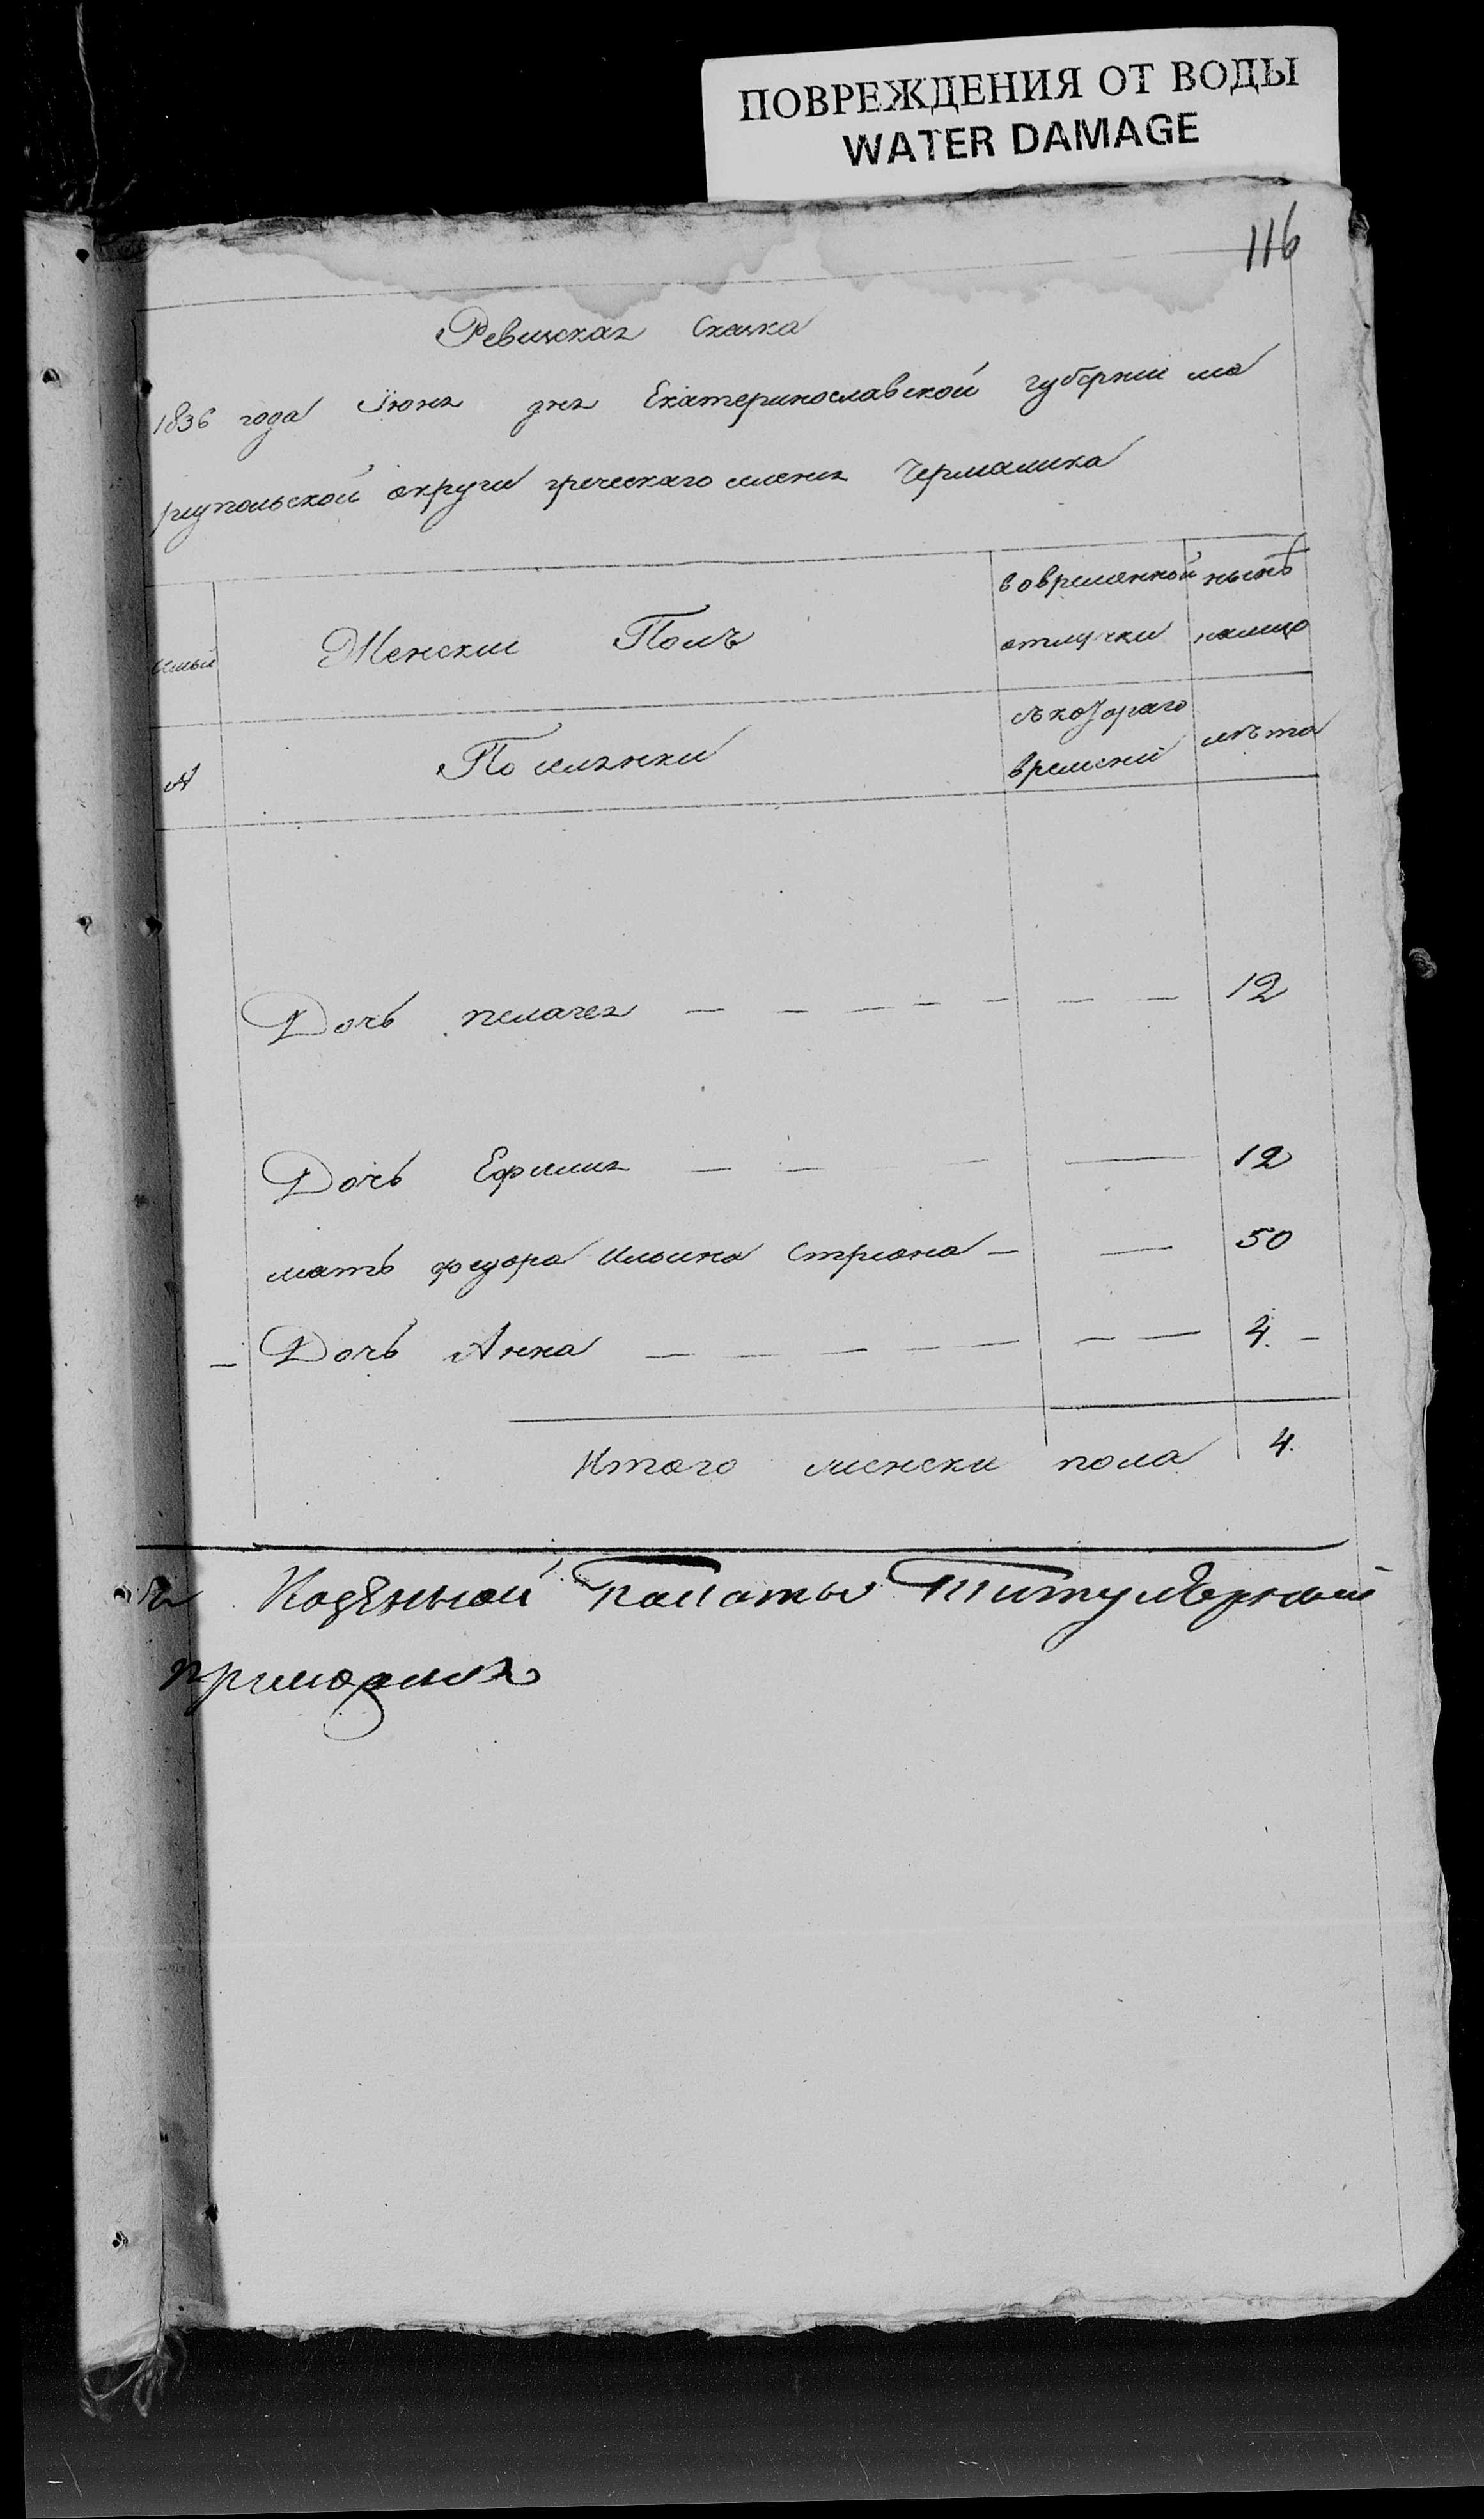 ПОВРЕЖДЕНИЯ ОТ ВОДЫ
WATER DAMAGE
116
Ревизская Сказка
1836 года Iюня дня Екатеринославской губернии ма
риупольской округи греческаго селения Чермалика
Женски Полъ
вовременной отлучки
ныне налицо
Поселянки
съкотораго времени
лѣта
Дочь пелагея — — — — — — — 12
Дочь Ефимия — — — — 12
мать федора Ильина Стриона — — 50
— Дочь Анна — — — — — — — 4. —
Итого женски пола 4.
Казенной Палаты Титулярный